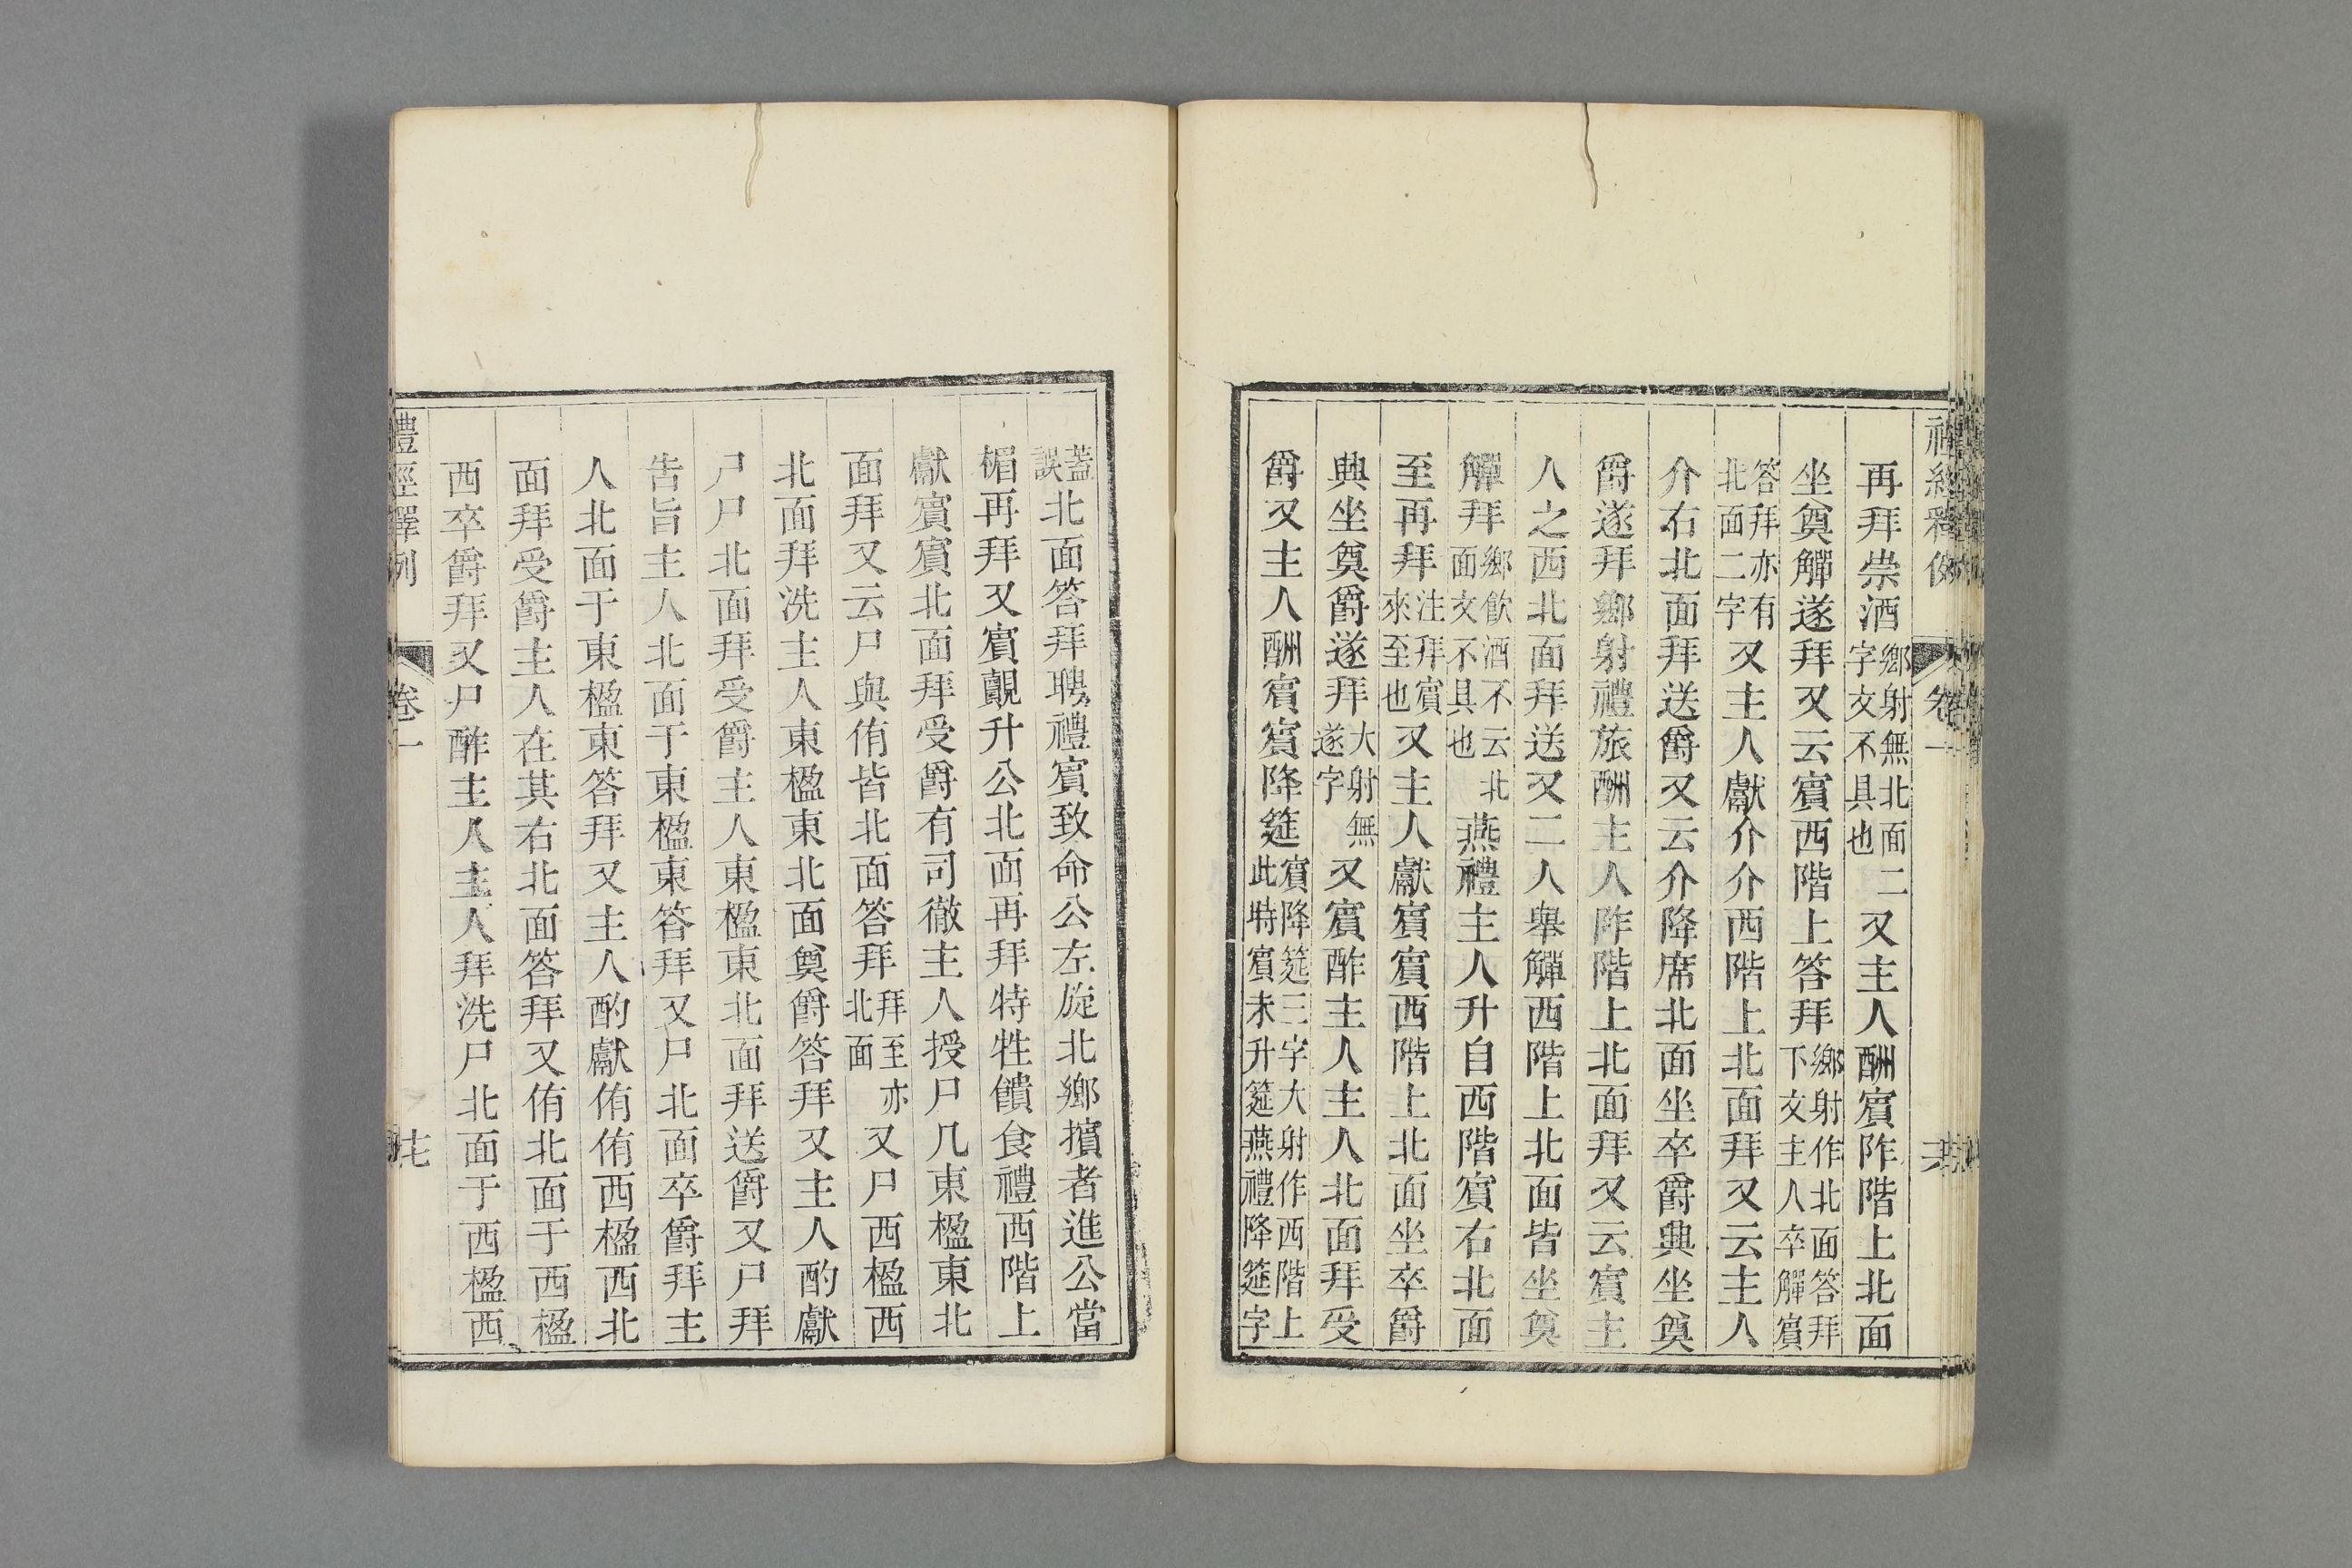 禮經釋例 卷一
再拜崇酒鄉射無北面二字文不具也又主人酬賓阼階上北面
坐奠觶遂拜又云賓西階上答拜鄉射作北面答拜下文主人卒觶賓
答拜亦有北面二字又主人獻介介西階上北面拜又云主人
介右北面拜送爵又云介降席北面坐卒爵興坐奠
爵遂拜鄉射禮旅酬主人阼階上北面拜又云賓主
人之西北面拜送又二人舉觶西階上北面皆坐奠
觶拜鄉飲酒不云北面文不具也燕禮主人升自西階賓右北面
至再拜注拜賓來至也又主人獻賓賓西階上北面坐卒爵
興坐奠爵遂拜大射無遂字又賓酢主人主人北面拜受
爵又主人酬賓賓降筵賓降筵三字大射作西階上此時賓未升筵燕禮降筵字
蓋誤北面答拜聘禮賓致命公左旋北鄉擯者進公當
楣再拜又賓覿升公北面再拜特牲饋食禮西階上
獻賓賓北面拜受爵有司徹主人授尸几東楹東北
面拜又云尸與侑皆北面答拜拜至亦北面又尸西楹西
北面拜洗主人東楹東北面奠爵答拜又主人酌獻
尸尸北面拜受爵主人東楹東北面拜送爵又尸拜
告旨主人北面于東楹東答拜又尸北面卒爵拜主
人北面于東楹東答拜又主人酌獻侑侑西楹西北
面拜受爵主人在其右北面答拜又侑北面于西楹
西卒爵拜又尸酢主人主人拜洗尸北面于西楹西
禮經釋例 卷一